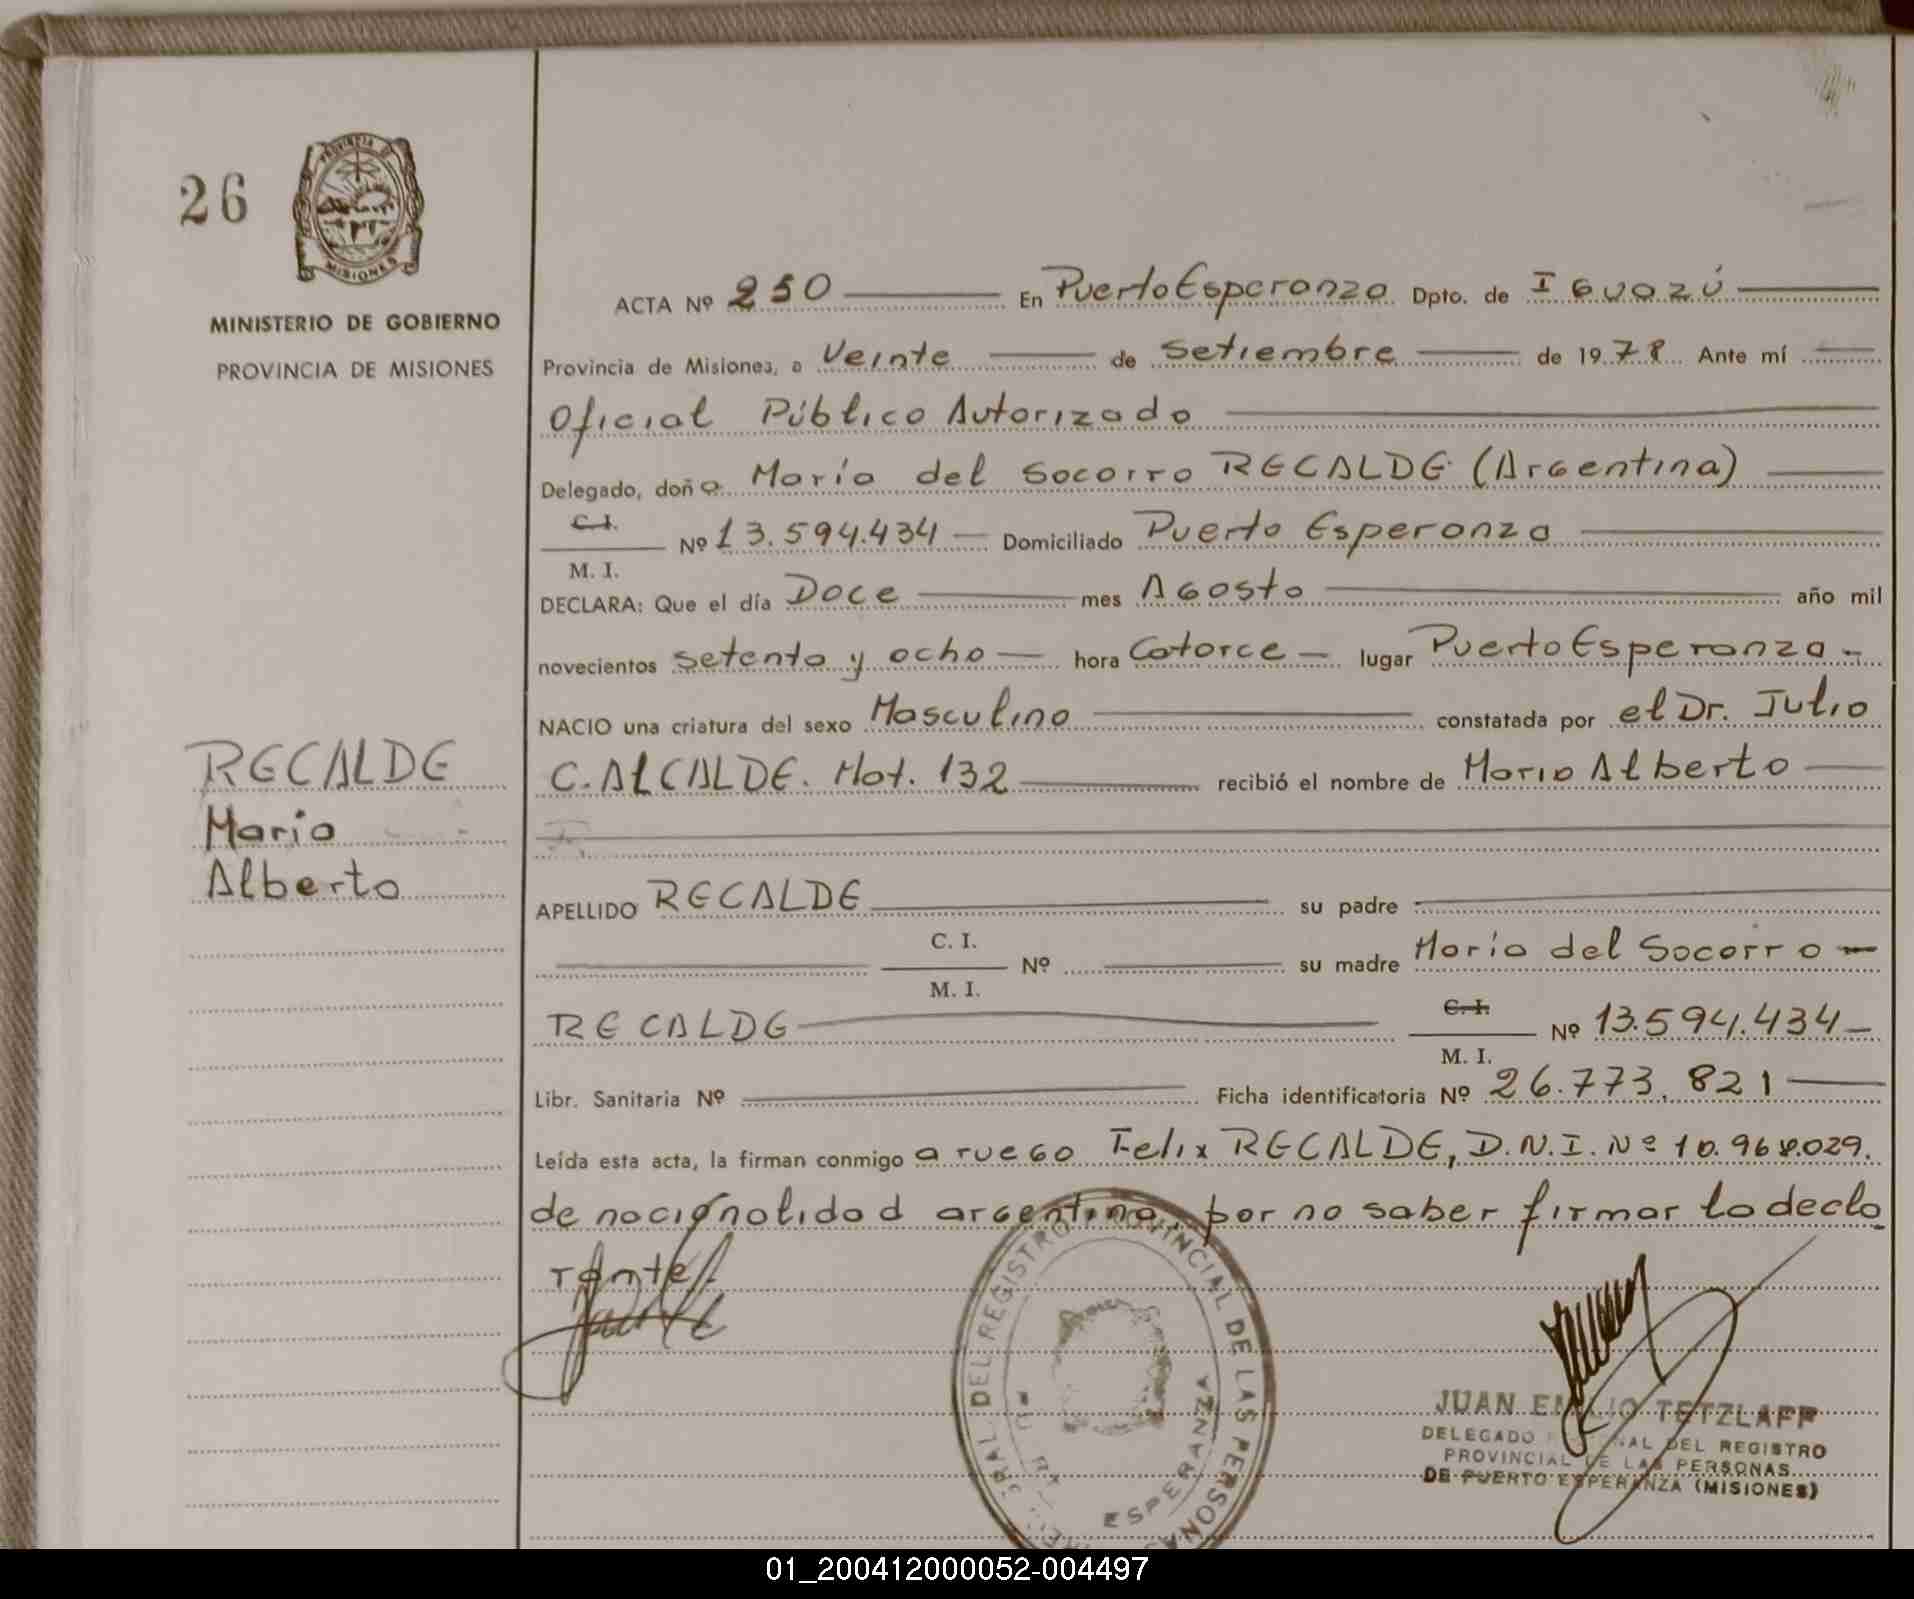 26
PROVINCIA DE
MISIONES
MINISTERIO DE GOBIERNO
PROVINCIA DE MISIONES
RECALDE
Mario
Alberto
ACTA Nº 250 En Puerto Esperanza Dpto. de Iguazú
Provincia de Misiones, a Veinte de Setiembre de 1978 Ante mí
Oficial Público Autorizado
Delegado, doña María del Socorro RECALDE (Argentina)
C. I.
Nº 13.594.434 Domiciliado Puerto Esperanza
M. I.
DECLARA: Que el día Doce mes Agosto año mil
novecientos setenta y ocho hora Catorce lugar Puerto Esperanza
NACIO una criatura del sexo Masculino constatada por el Dr. Julio
C. ALCALDE. Mat. 132 recibió el nombre de Mario Alberto
APELLIDO RECALDE su padre
C. I.
Nº su madre María del Socorro
M. I.
RECALDE C. I. Nº 13.594.434
M. I.
Libr. Sanitaria Nº Ficha identificatoria Nº 26.773.821
Leída esta acta, la firman conmigo a ruego Felix RECALDE, D.N.I. Nº 10.968.029.
de nacionalidad argentina, por no saber firmar la decla
rante.
DEL REGISTRO PROVINCIAL DE LAS PERSONAS
ESPERANZA
JUAN EMILIO TETZLAFF
DELEGADO DEL REGISTRO
PROVINCIAL DE LAS PERSONAS
DE PUERTO ESPERANZA (MISIONES)
01_200412000052-004497